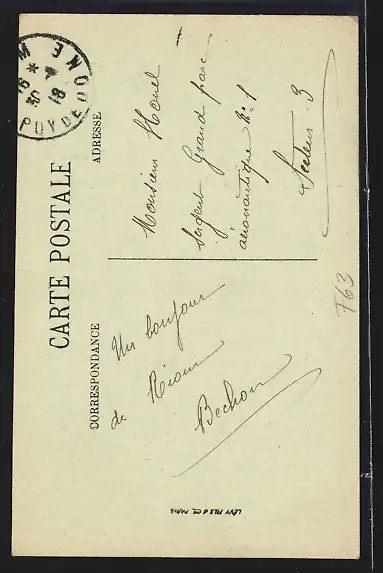 CARTE POSTALE
CORRESPONDANCE
Un bonjour
de Riom
Bechon
ADRESSE
Monsieur Morel
sergent Grand parc
aéronautique No 1
Secteur 3
PUY DE DOME
30
18
F63
LÉVY FILS & Cie, PARIS